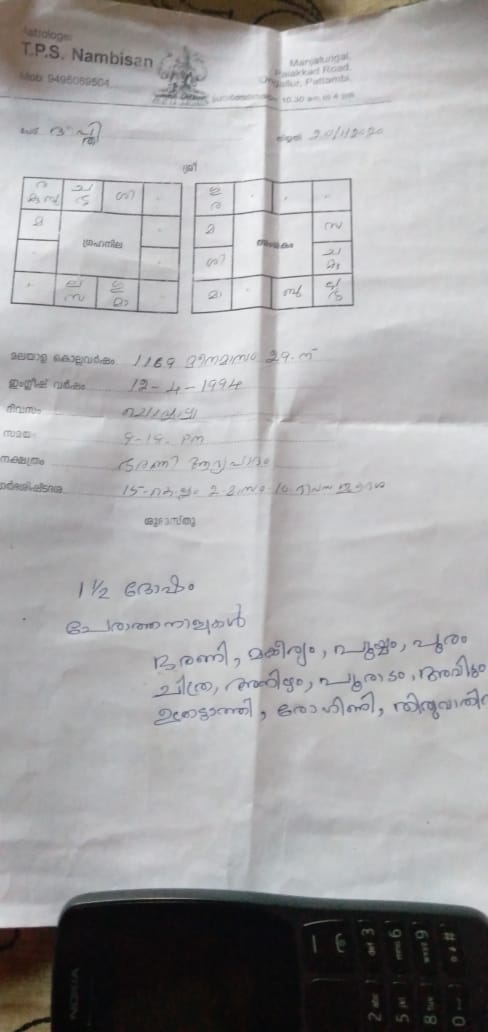 Astrologer
T.P.S. Nambisan
Mob: 9495069504
Manjalungal,
Palakkad Road,
Ongallur, Pattambi.
10.30 am to 4 pm
പേര് ദീപ്തി
തിയ്യതി 20/1/2020
ശ്രീ
ര
കു ബു
ച
ശു
ശി
മ
ഗ്രഹനില
ല
സ
ഗു
മാ
ഗു
ര
മ
സ
ശി
ച
മാ
ബു
ല
ശു
മലയാള കൊല്ലവർഷം 1169 മീനമാസം 29-ന്
ഇംഗ്ലീഷ് വർഷം 12-4-1994
ദിവസം
സമയം 9-19. PM
നക്ഷത്രം ഭരണി ആദ്യപാദം
ഗർഭശിഷ്ടദശ 15-കൊല്ലം 2 മാസം
ശുഭമസ്തു
1 1/2 ദോഷം
ചേരാത്തനാളുകൾ
ഭരണി, മകീര്യം, പൂയ്യം, പൂരം
ചിത്ര, അനിഴം, പൂരാടം, അവിട്ടം
ഉത്രട്ടാത്തി, രോഹിണി, തിരുവാതിര
NOKIA
2 abc
def 3
5 jkl
mno 6
8 tuv
wxyz 9
0
#